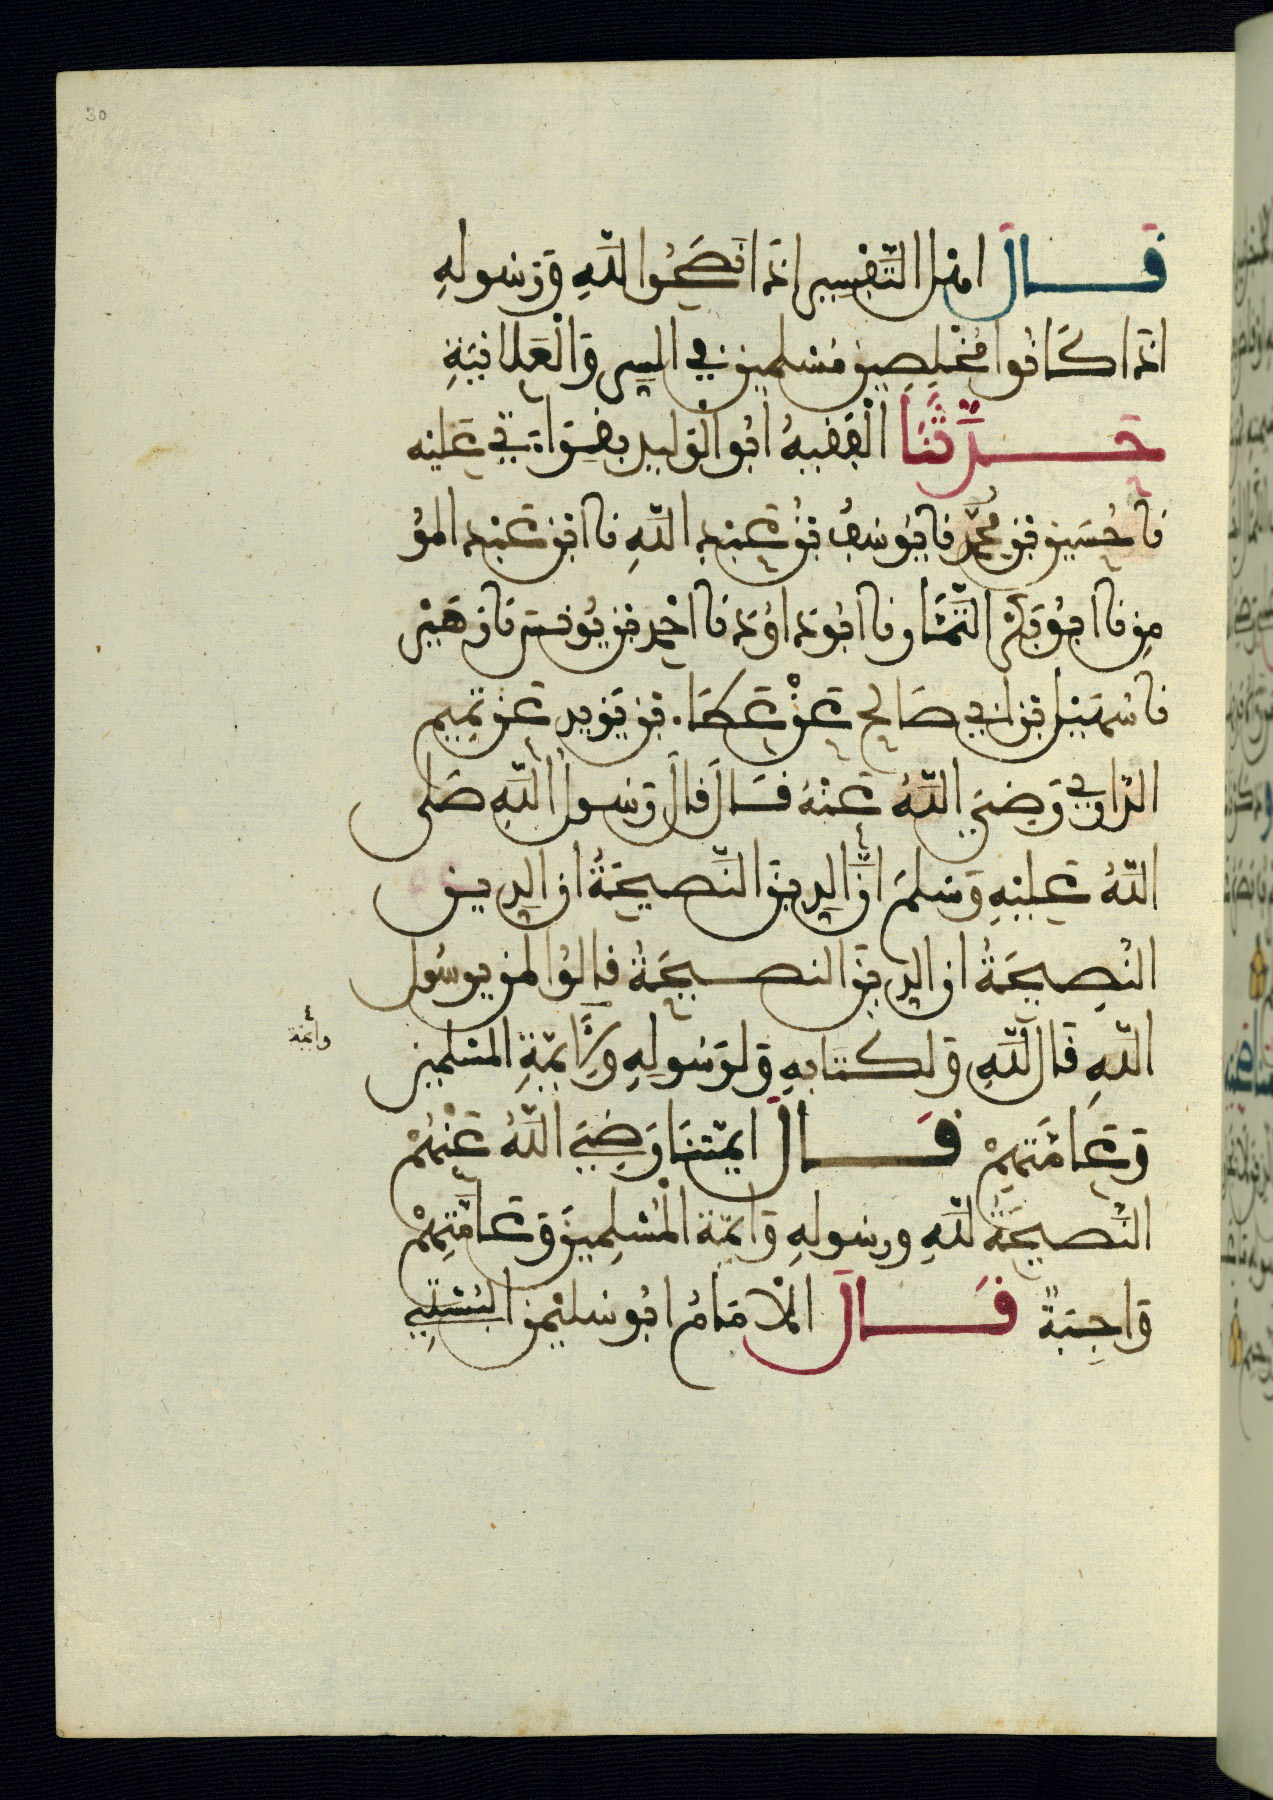 30
قَالَ اهل التَّفْسِير اذا نَصَحُوا لِلَّهِ وَرَسُولِهِ
اذا كَانُوا مُخْلِصِين مُسْلمين في السِر وَالْعَلَانيَةِ
حَدَّثَنَا الْفَقِيهُ ابُو الْوَليد بقراءتي عَلَيْه
نا حُسَين بْن مُحَمَّد نا يُوسُف بْنُ عَبْد اللَّهِ نا ابْن عَبْد المُو
مِن نا ابُو بَكْر التَّمَّار نا ابُو دَاوُد نا احْمد بْن يُونس نا زهَيْر
نا سُهَيْل بْن ابي صَالح عَنْ عَطَاء بْن يَزيد عَن تَمِيم
الدَّاري رَضِيَ اللَّهُ عَنْهُ قَالَ قَالَ رَسُولُ اللَّهِ صَلى
اللَّهُ عَلَيْهِ وَسَلمَ انَّ الدِينَ النَّصيحَةُ ان الدِين
النَصِيحَةُ ان الدِينَ النصيحَةُ قالُوا لمن يرسُول
اللَّهِ قَال لِلَّهِ وَلكتَابهِ وَلرَسُولِهِ وَايمَّةِ المسْلمين
وأيمَّة
وَعَامَّتِهِمْ قَالَ ايمَّتنَا رَضِيَ اللَّهُ عَنْهُمْ
النَّصيحَةُ لِلَّهِ ورسُولهِ وَايمَّة الْمُسْلِمِينَ وَعَامَّتِهِمْ
وَاجِبَةٌ قَالَ الْامَامُ ابُو سُلَيْمن البُسْتِي